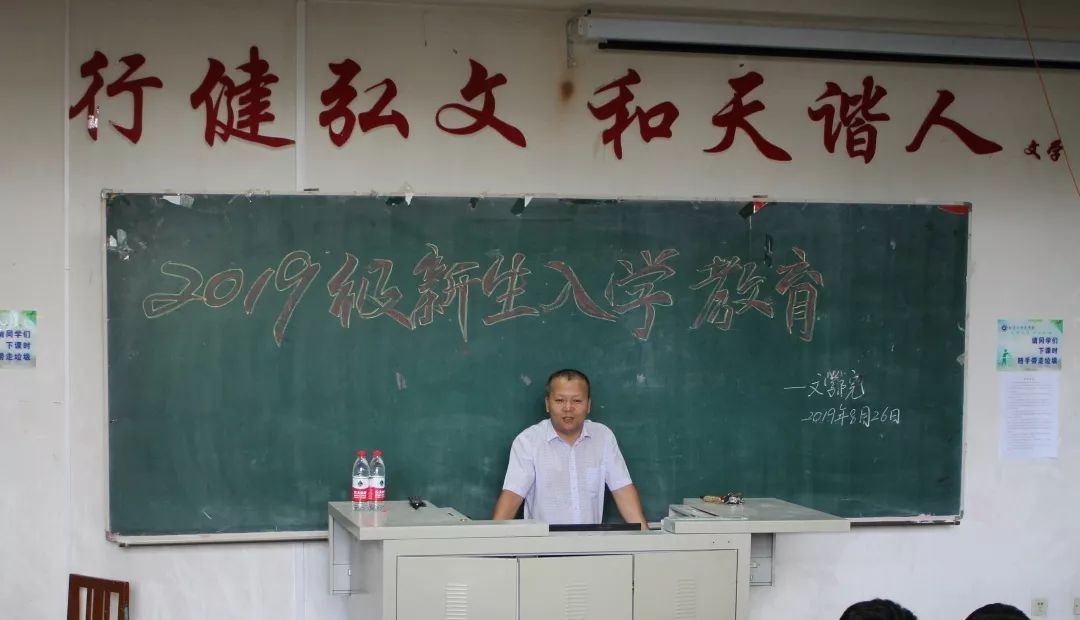 行健弘文 和天谐人 文学
2019级新生入学教育
—文学院
2019年8月26日
请同学们
下课时
带走垃圾
请同学们
下课时
随手带走垃圾